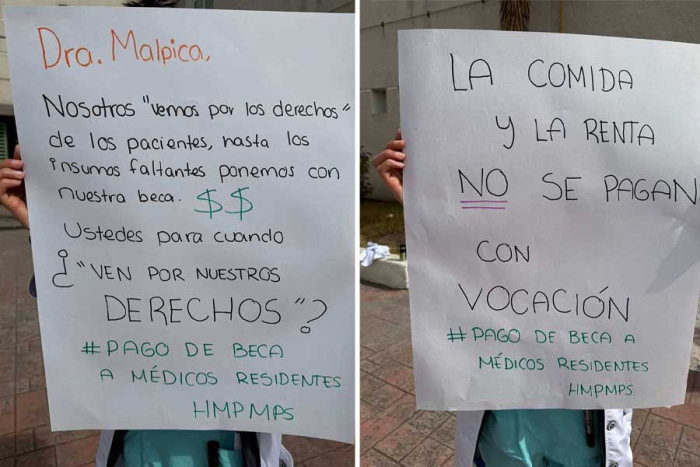 Dra. Malpica,
Nosotros "vemos por los derechos"
de los pacientes, hasta los
insumos faltantes ponemos con
nuestra beca. $$
Ustedes para cuando
¿"VEN POR NUESTROS
DERECHOS"?
#PAGO DE BECA
A MÉDICOS RESIDENTES
HMPMPS
LA COMIDA
Y LA RENTA
NO SE PAGAN
CON
VOCACIÓN
#PAGO DE BECA A
MÉDICOS RESIDENTES
HMPMPS